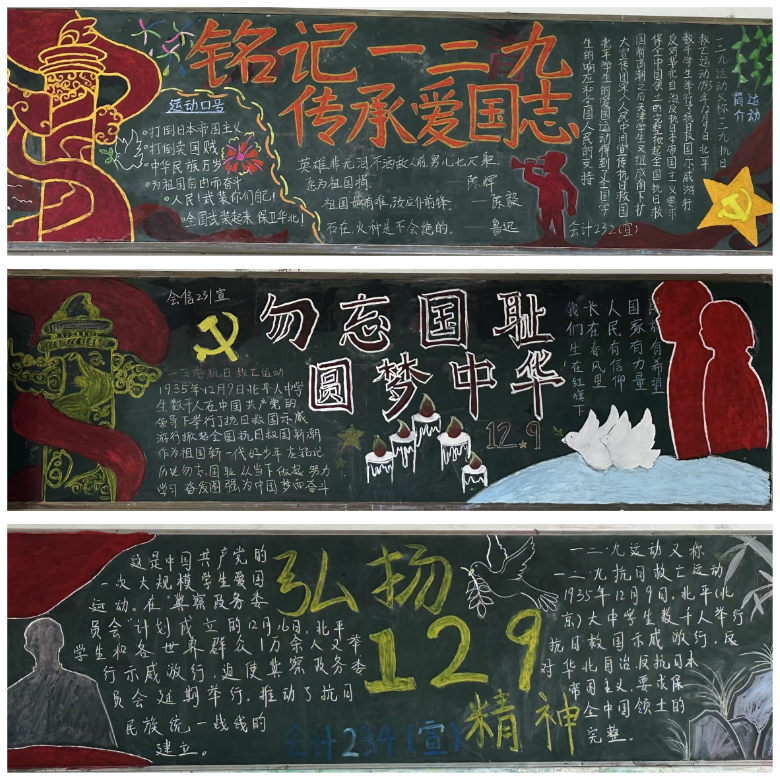 铭记一二九
传承爱国志
运动口号
打倒日本帝国主义
打倒卖国贼
中华民族万岁
为祖国自由而奋斗
人民！武装你们自己！
全国武装起来保卫华北！
英雄非无泪不洒敌人前男儿七尺躯
愿为祖国捐
陈辉
祖国如有难，汝应作前锋
——陈毅
石在，火种是不会绝的。
鲁迅
会计232(宣)
运动
简介
一二九运动又称一二九抗日
救亡运动1935年12月9日北平
数千学生举行了抗日救国示威游行
反对华北自治反抗日本帝国主义要求
保全中国领土的完整掀起全国抗日救
国新高潮之后天津学生又组成南下扩
大宣传团深入人民中间宣传抗日救国
北平学生的爱国运动得到了全国学
生的响应和全国人民的支持
会信231宣
勿忘国耻
圆梦中华
一二·九抗日救亡运动
1935年12月9日北平大中学
生数千人在中国共产党的
领导下举行了抗日救国示威
游行掀起全国抗日救国新潮
作为祖国新一代好少年应铭记
历史勿忘国耻从当下做起努力
学习奋发图强为中国梦而奋斗
12.9
民族有希望
国家有力量
人民有信仰
长在春风里
我们生在红旗下
弘扬
129
精神
这是中国共产党的
一次大规模学生爱国
运动。在“冀察政务委
员会”计划成立的12月16日，北平
学生和各世界群众1万余人又举
行示威游行，迫使冀察政务委
员会延期举行，推动了抗日
民族统一线线的
建立。
会计234(宣)
一二·九运动又称
一二·九抗日救亡运动
1935年12月9日，北平(北
京)大中学生数千人举行
抗日救国示威游行，反
对华北自治，反抗日本
帝国主义，要求保
全中国领土的
完整。